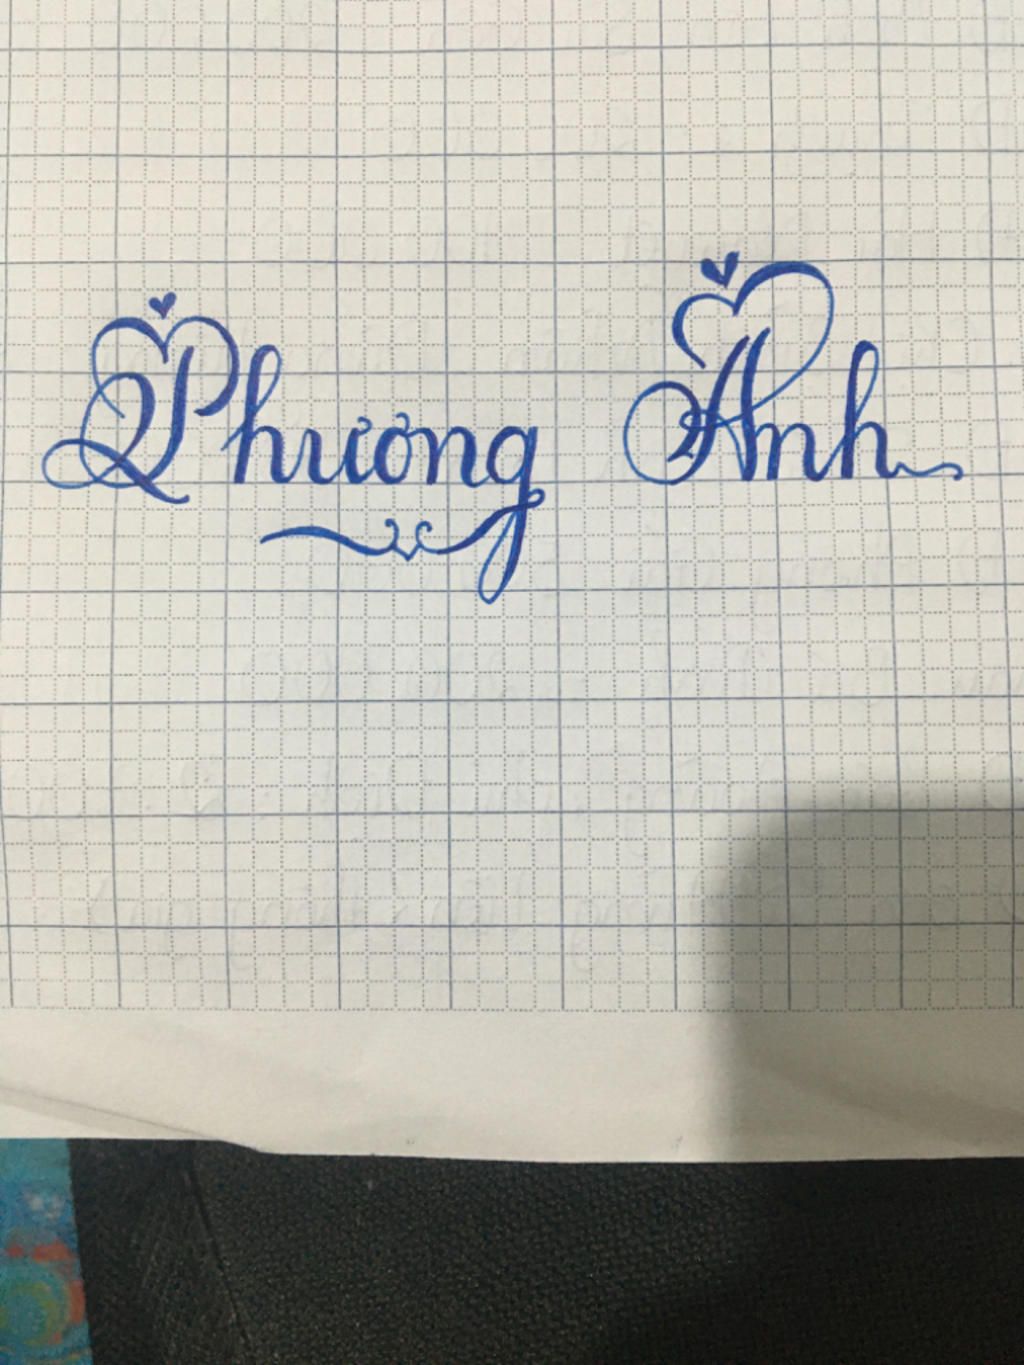 Phương Anh